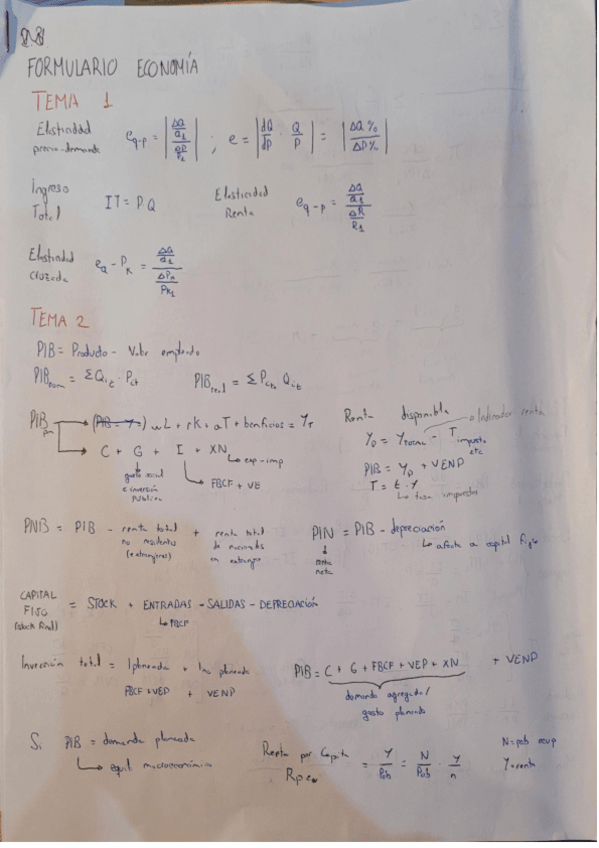 FORMULARIO ECONOMÍA
TEMA 1
Elasticidad precio-demanda e_q-p = |(ΔQ/Q1)/(ΔP/P1)| ; e = |dQ/dp · Q/P| = |ΔQ%/ΔP%|
Ingreso Total IT = P.Q
Elasticidad Renta e_q-p = (ΔQ/Q1)/(ΔR/R1)
Elasticidad cruzada e_Q - P_K = (ΔQ/Q1)/(ΔPK/PK1)
TEMA 2
PIB = Producto - Valor empleado
PIB nom = ΣQit · Pct
PIB real = ΣPct0 Qit
PIB pm → (PIB = Y =) wL + rK + aT + benficios = YT
→ C + G + I + XN
gasto social e inversión pública
FBCF + VE
exp-imp
Renta disponible → Indicador renta
YD = YTOTAL - T impuesto etc
PIB = YD + VENP
T = t · Y
↳ tasa impuestos
PNB = PIB - renta total no residentes (extranjeros) + renta total de nacionales en extranjero
PIN = PIB - depreciación
↳ afecta a capital fijo
renta neta
CAPITAL FIJO (stock final) = STOCK + ENTRADAS - SALIDAS - DEPRECIACIÓN
↳ FBCF
Inversión total = I planeada + I no planeada
FBCF + VEP + VENP
PIB = C + G + FBCF + VEP + XN + VENP
demanda agregada/
gasto planeado
Si PIB = demanda planeada
↳ equil macroeconómico
Renta per Capita = Y/Pob = N/Pob · Y/n
Rpc
N = pob ocup
Y = renta